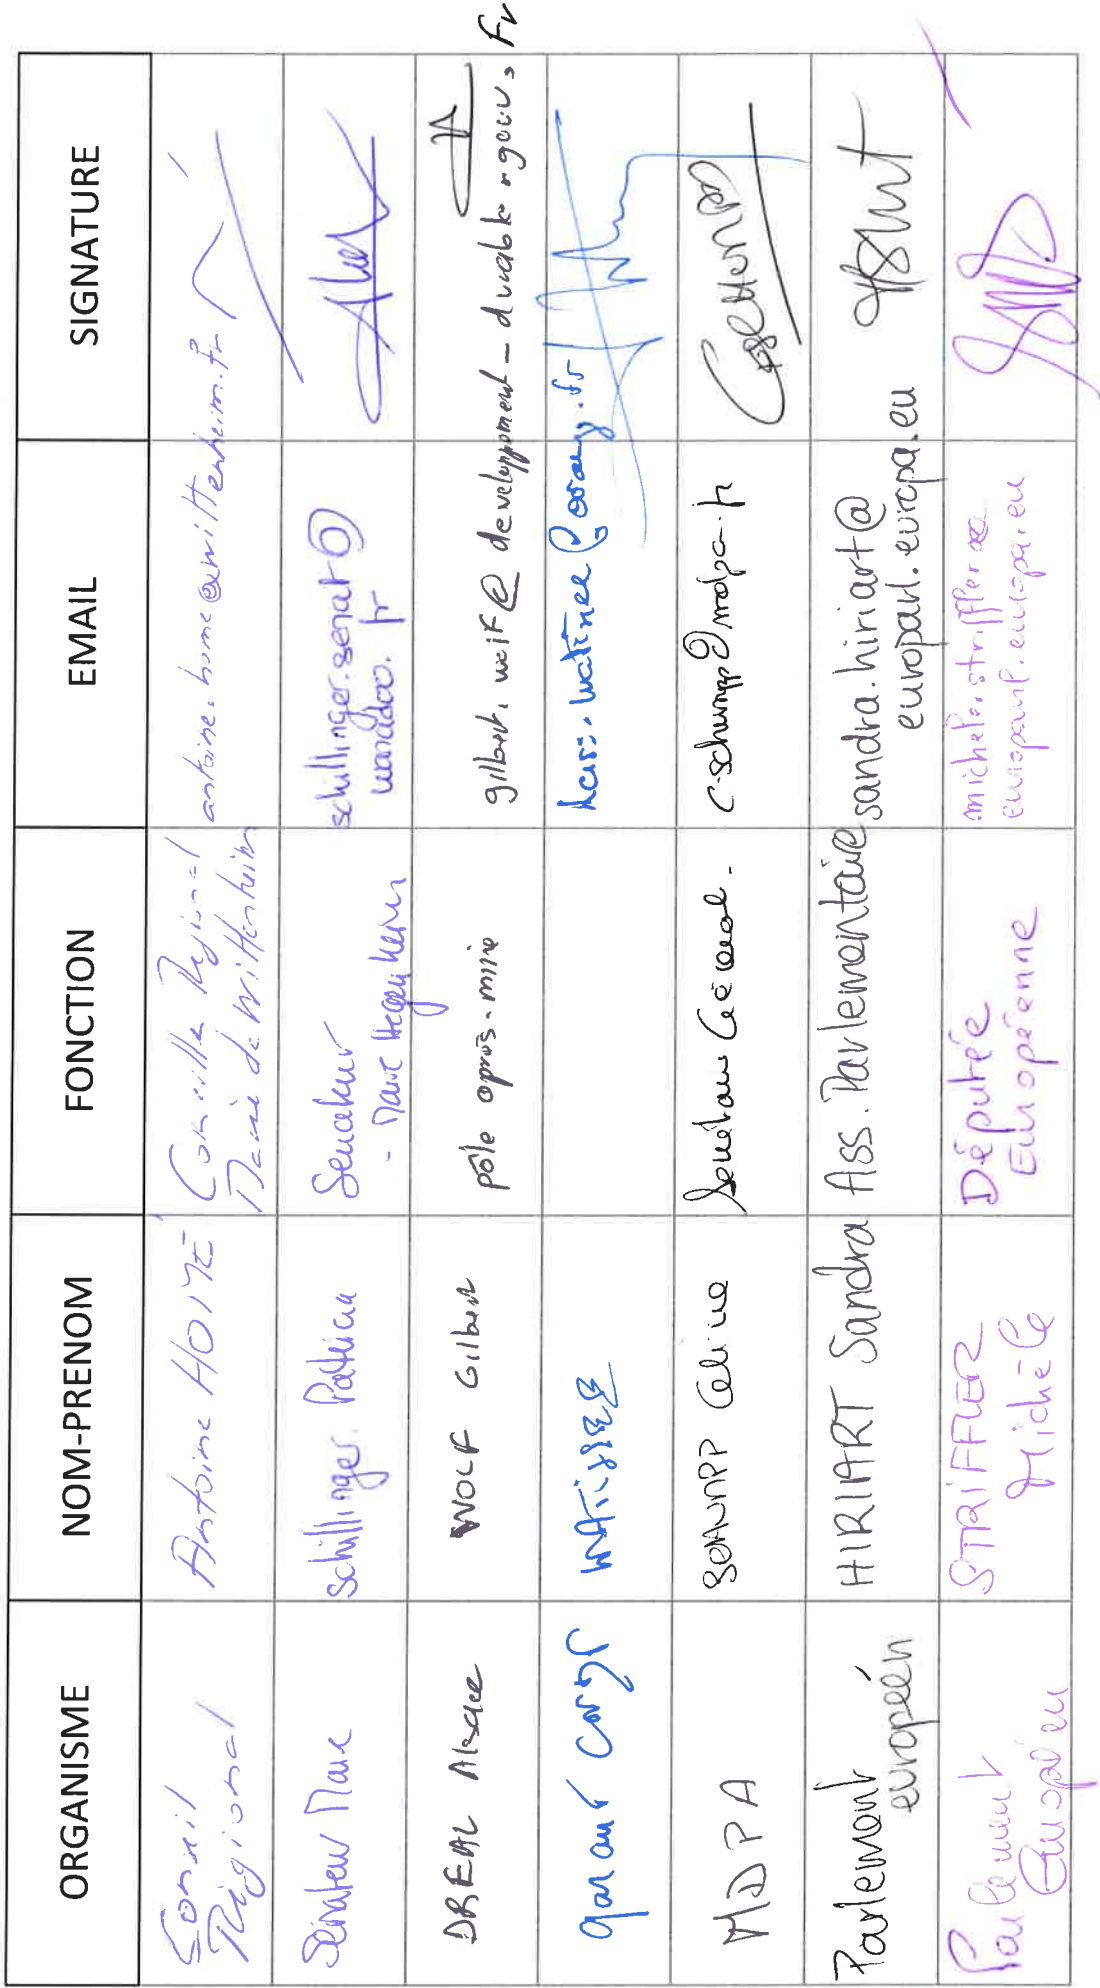 ORGANISME NOM-PRENOM FONCTION EMAIL SIGNATURE
Conseil
Régional
Antoine HOME
Conseiller Régional
Maire de Wittenheim
antoine.home@wittenheim.fr
Sénateur Maire
schillinger Patricia
Senateur
- Maire Hegenheim
schillinger.senat@
wanadoo.fr
DREAL Alsace
WOLF Gilbert
pôle après-mine
gilbert.wolf@developpement-durable.gouv.fr
garant
MDPA
SCHUMPP Céline
Secrétaire Général.
c.schumpp@mdpa.fr
Parlement
européen
HIRIART Sandra
Ass. Parlementaire
sandra.hiriart@
europarl.europa.eu
Parlement
Européen
STRIFFLER
Michèle
Députée
Européenne
michele.striffler@
europarl.europa.eu